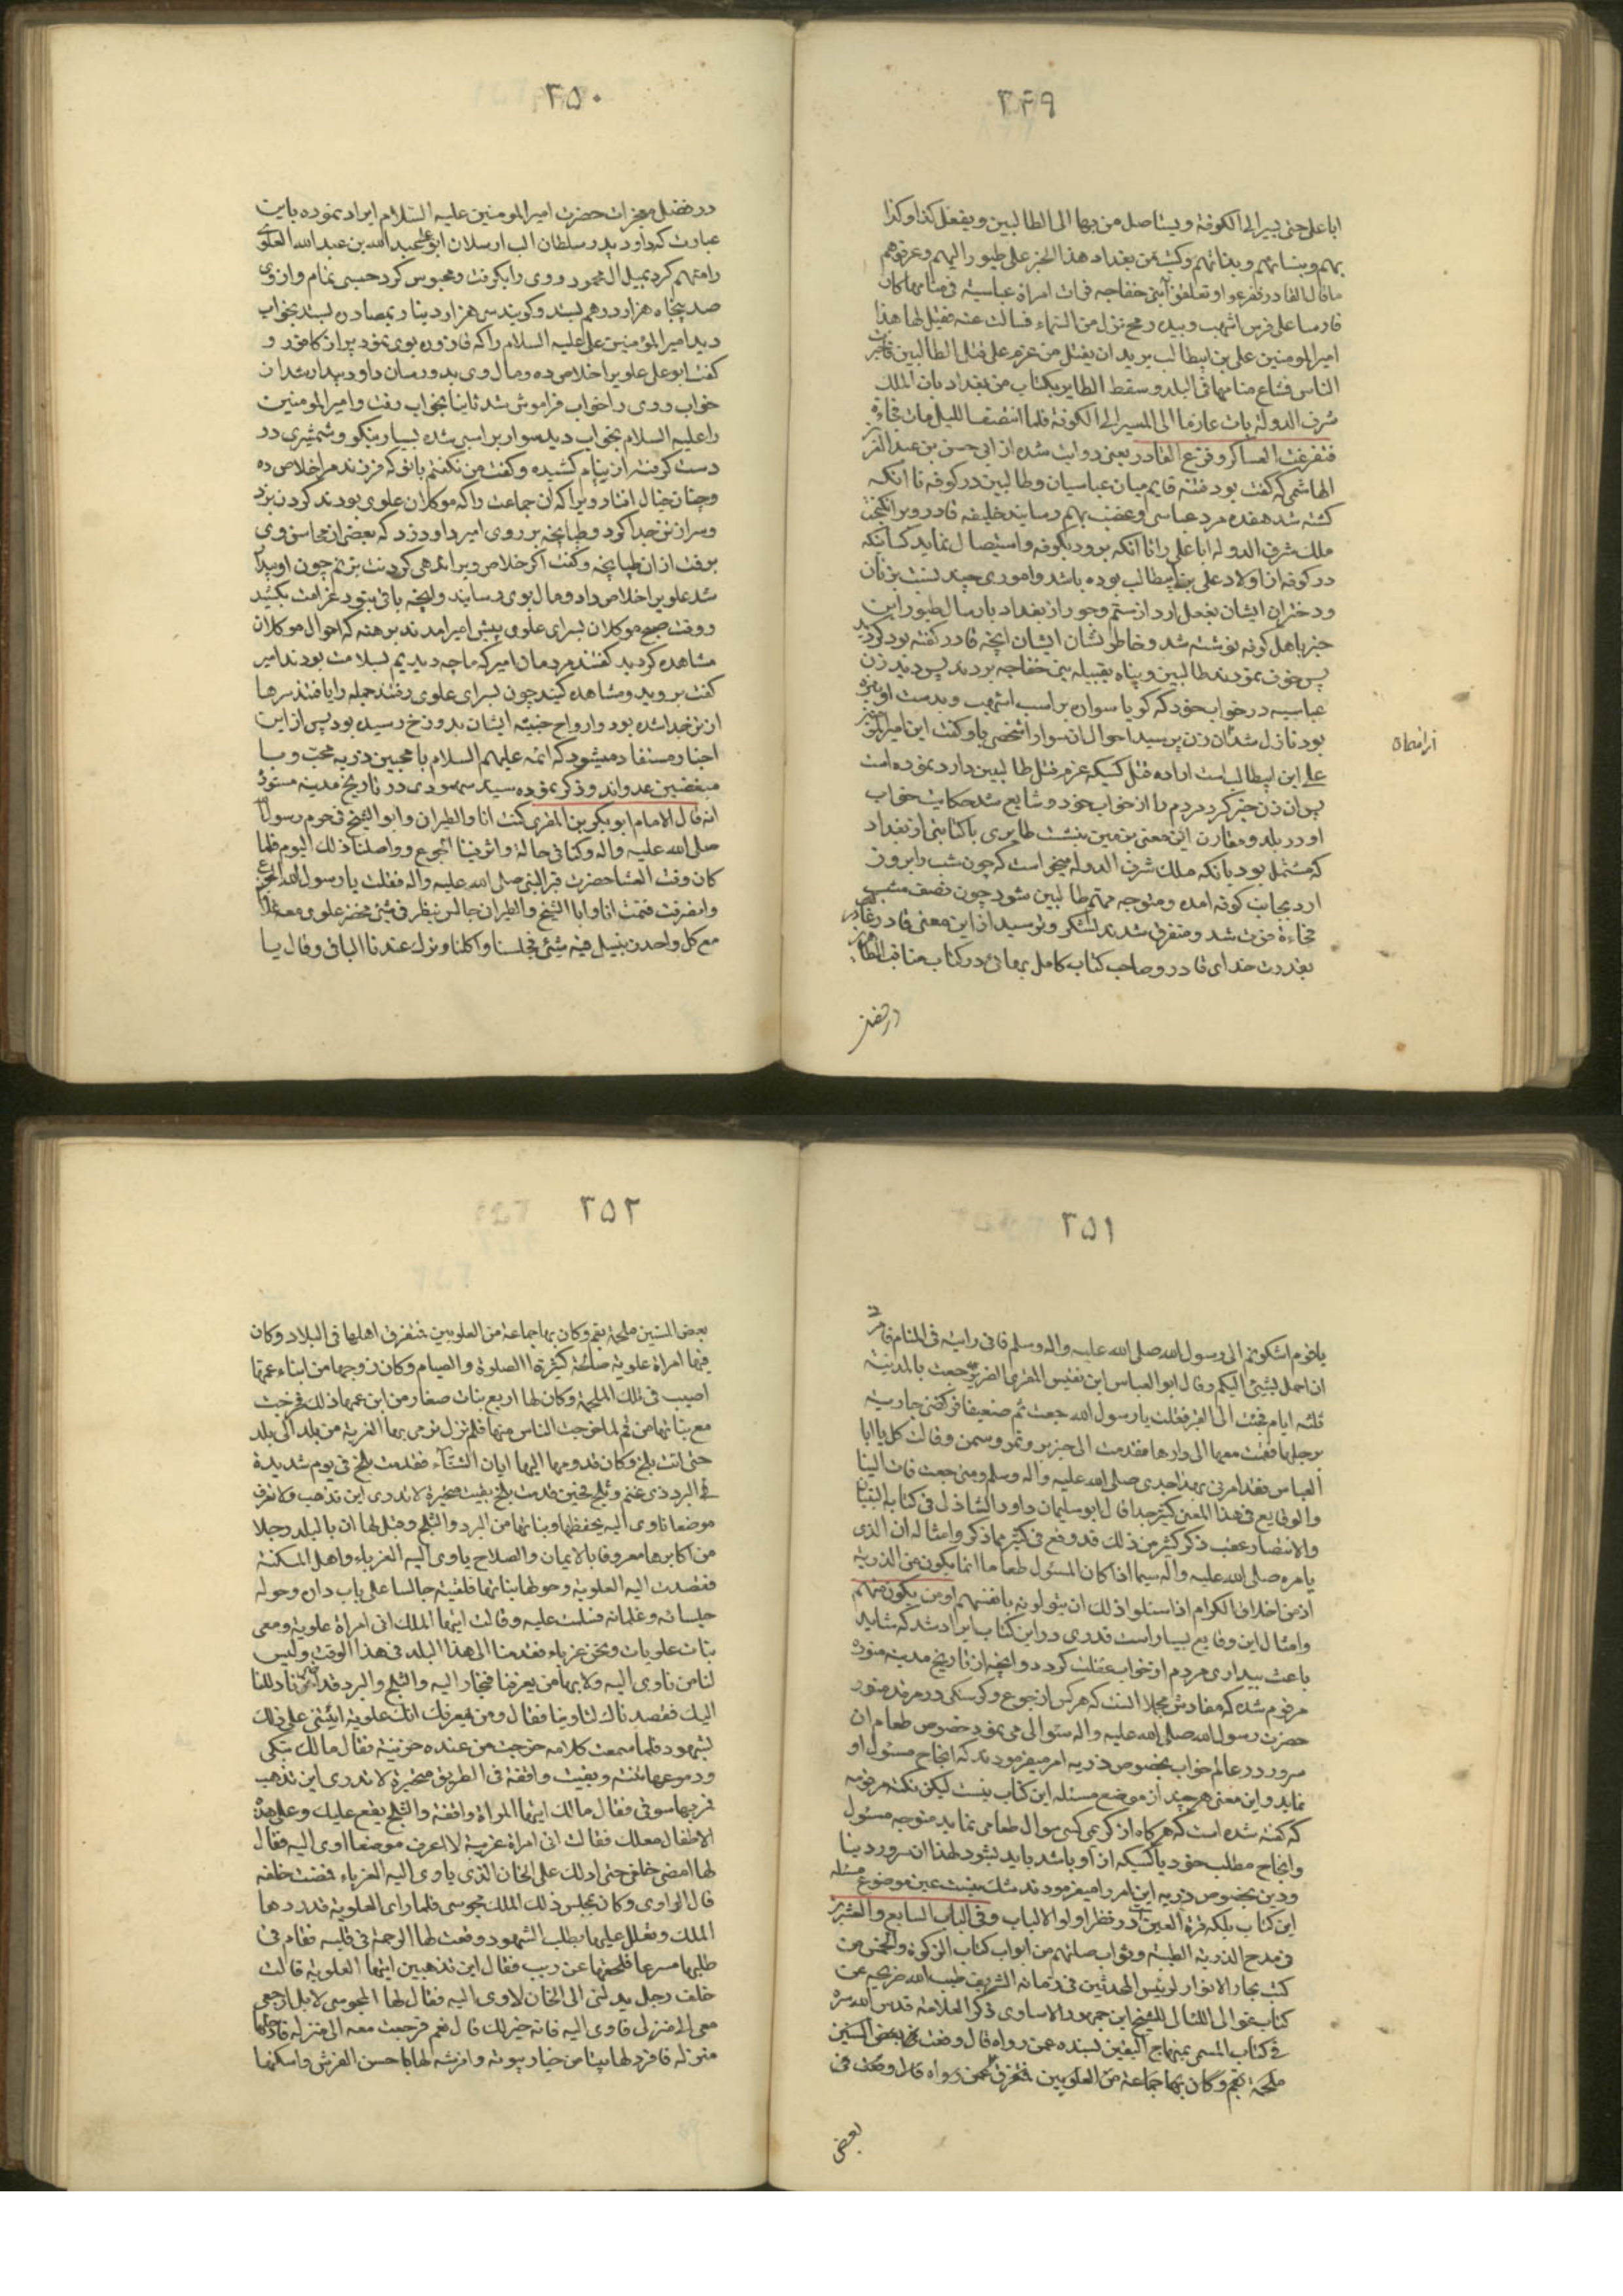 ۳۴۹
ابا علی حتی یسیر الی الکوفة ویستاصل من بها الی الطالبین ویفعل کذا وکذا
بهم وبنسائهم وبناتهم وکتب من بغداد هذا الخبر علی طیور الیهم وعرفوهم
ما قال القادر ففزعوا وتعلقوا ببنی خفاجه فرات امراة عباسیة فی منامها کان
فارسا علی فرس اشهب وبیده رمح نزل من السماء فسالت عنه فقیل لها هذا
امیر المومنین علی بن ابیطالب یرید ان یقتل من عزم علی قتل الطالبین فاخبرت
الناس فشاع منامها فی البلد وسقط الطایر بکتاب من بغداد بان الملک
شرف الدولة بات عازما الی المسیر الی الکوفة فلما انتصف اللیل مات فجاءة
فتفرقت العساکر وفزع القادر یعنی روایت شده از ابی حسن بن عبد
الهاشمی که گفت بود فتنه قایم میان عباسیان وطالبین در کوفه تا انکه
کشته شد هفده مرد عباسی وغضب بهم رسانید خلیفه قادر وبرانکیخت
ملک شرف الدوله ابا علی را تا آنکه برود بکوفه واستیصال نماید کسانیکه
در کوفه از اولاد علی بن ابیطالب بوده باشد واموری چند نسبت بزنان
ودختران ایشان بفعل ارد از ستم وجور از بغداد بارسال طیور این
خبر باهل کوفه نوشته شد وخاطر نشان ایشان انچه قادر کفته بود کردید
پس خوف نمودند طالبین وپناه بقبیله بنی خفاجه بردند پس دید زن
عباسیه در خواب خود که کویا سواری بر اسب اشهب وبدست او نیزه
بود نازل شد ان زن پرسید احوال ان سوار اشخصی باو کفت این امیر المومنین
علی ابن ابیطالب است اراده قتل کسیکه عزم قتل طالبین دارد نموده است
پس ان زن خبر کرد مردم را از خواب خود وشایع شد حکایت خواب
او در بلد ومقارن این معنی بزمین بنشست طایری با کتابتی از بغداد
که مشتمل بود بانکه ملک شرف الدوله میخواست که چون شب را بروز
ارد بجانب کوفه امده ومتوجه مهم طالبین شود چون نصف شب
فجاءة فوت شد ومتفرق شدند لشکر وترسید از این معنی قادر
بقدرت خدای قادر وصاحب کتاب کامل بهائی در کتاب مناقب
در فضل
۳۵۰
در فضل معجزات حضرت امیر المومنین علیه السلام ایراد نموده باین
عبارت که داود پدر سلطان الب ارسلان ابو علی عبید الله بن عبد الله العلوی
را متهم کرد بمیل ال محمود ووی را بکرفت ومحبوس کرد حبسی تمام واز وی
صد پنجاه هزار درهم بستد وکویند سی هزار دینار بمصادره بستد بخواب
دید امیر المؤمنین علی علیه السلام را که قاروره بوی نمود پر از کافور و
کفت ابو علی علوی را خلاص ده ومال وی بده ورسان داود بیدار شد ان
خواب ووی را خواب فراموش شد ثانیا بخواب رفت وامیر المومنین
را علیه السلام بخواب دید سوار بر اسبی شده بسیار نیکو وشمشیری در
دست کرفته از نیام کشیده وکفت من نکفتم با تو که فرزندم را خلاص ده
وچنان خیال افتاد ویرا که ان جماعت را که موکلان علوی بودند کردن بزد
وسر از تن جدا کرد وطپانچه بر روی امیر داود زد که بعضی از محاسن وی
برفت از ان طپانچه وکفت اکر خلاص ویرا ندهی کردنت بزنم چون او بیدار
شد علوی را خلاص داد ومال بوی رسانید وانچه باقی بنود غرامت بکشید
ووقت صبح موکلان بسرای علوی پیش امیر امدند برهنه که احوال موکلان
مشاهده کردید کفتند مردمان امیر که ما چه دیدیم بسلامت بودند امیر
کفت بروید ومشاهده کنید چون بسرای علوی رفتند جمله را یافتند سرها
از تن جدا شده بود وارواح خبیثه ایشان بدوزخ رسیده بود پس از این
اخبار مستفاد میشود که ائمه علیهم السلام با محبین ذریه محب وبا
مبغضین عدواند وذکر نموده سید سمهودی در تاریخ مدینه منوره
انه قال الامام ابو بکر بن المقری کنت انا والطبرانی وابو الشیخ فی حرم رسول الله
صلی الله علیه واله وکنا فی حالة واثر فینا الجوع وواصلنا ذلک الیوم فلما
کان وقت العشا حضرت قبر النبی صلی الله علیه واله فقلت یا رسول الله الجوع
وانصرفت فنمت انا وابا الشیخ والطبرانی جالس ینظر فی شئ فحضر علوی ومعه غلامان
مع کل واحد زنبیل فیه شئ فجلسنا واکلنا وترک عندنا الباقی وقال یا
۳۵۱
یا قوم اشکوتم الی رسول الله صلی الله علیه واله وسلم فانی رایته فی المنام فامرنی
ان احمل بشیئ الیکم وقال ابو العباس ابن نفیس المقری الضریر جعت بالمدینة
ثلثه ایام فجئت الی القبر فقلت یا رسول الله جعت ثم نمت ضعیفا فرکضتنی جاریة
برجلها فقمت معها الی دارها فقدمت الی خبز بر وتمر وسمن وقالت کل یا ابا
العباس فقد امرنی بهذا جدی صلی الله علیه واله وسلم ومتی جعت فات الینا
والوقایع فی هذا المعنی کثیر جدا قال ابو سلیمان داود الشاذلی فی کتابه البیان
والانتصار عقب ذکر کثیر من ذلک قد وقع فی کثیر مما ذکر وامثاله ان الذی
یامره صلی الله علیه وآله سیما اذا کان المسئول طعاما انما یکون من الذریه
اذ من اخلاق الکرام اذا سئلوا ذلک ان یتولونه بانفسهم او من یکون منهم
وامثال این وقایع بسیار است قدری در این کتاب ایراد شد که شاید
باعث بیداری مردم از خواب غفلت کردد وانچه از تاریخ مدینه منوره
مرقوم شده که مفادش مجملا انست که هر کس از جوع وکرسنکی در مرقد منور
حضرت رسول الله صلی الله علیه واله سئوالی می نمود خصوص طعام ان
سرور در عالم خواب بخصوص ذریه امر میفرمودند که انجاح مسئول او
نماید واین معنی هر چند از موضع مسئله این کتاب نیست لیکن نکته مرقومه
که کفته شده است که هر کاه از کریمی کسی سوال طعامی نماید متوجه مسئول
وانجاح مطلب خود یا کسیکه از او باشد باید بشود لهذا ان سرور دنیا
ودین بخصوص ذریه این امر را میفرمودند شک نیست عین موضوع مسئله
این کتاب بلکه قرة العین در نظر اولو الالباب وفی الباب السابع والعشر
فی مدح الذریة الطیبة وثواب صلتهم من ابواب کتاب الزکوة والخمس من
کتب بحار الانوار لرئیس المحدثین فی زمانه الشریف طیب الله ضریحه عن
کتاب غوالی اللئالی للشیخ ابن جمهور الاساوی ذکر العلامة قدس الله سره
فی کتاب المسمی بمنهاج الیقین بسنده عمن رواه قال وقعت فی بعض السنین
ملحمة بقم وکان بها جماعة من العلویین فتفرق عمن رواه قال وقعت فی
بعض
۳۵۲
بعض السنین ملحمة بقم وکان بها جماعة من العلویین فتفرق اهلها فی البلاد وکان
فیها امراة علویة صالحة کثیرة الصلوة والصیام وکان زوجها من ابناء عمها
اصیب فی تلک الملحمة وکان لها اربع بنات صغار من ابن عمها ذلک فخرجت
مع بناتها من قم لما خرجت الناس منها فلم تزل ترمی بها الغربة من بلد الی بلد
حتی اتت بلخ وکان قدومها الیها ابان الشتآء فقدمت بلخ فی یوم شدیدة
البرد ذی غیم وثلج فحین قدمت بلخ بقیت متحیرة لا تدری این تذهب ولا تعرف
موضعا تاوی الیه یحفظها وبناتها من البرد والثلج وقیل لها ان بالبلد رجلا
من اکابرها معروفا بالایمان والصلاح یاوی الیه الغرباء واهل المسکنة
فقصدت الیه العلویة وحولها بناتها فلقیته جالسا علی باب داره وحوله
جلسائه وغلمانه فسلمت علیه وقالت ایها الملک انی امراة علویة ومعی
بنات علویات ونحن غرباء فقدمنا الی هذا البلد فی هذا الوقت ولیس
لنا من ناوی الیه ولا بها من یعرفنا فنحاز الیه والثلج والبرد قد اضرنا دللنا
الیک فقصدناک لتاوینا فقال ومن یعرفک انک علویة ایتنی علی ذلک
بشهود فلما سمعت کلامه خرجت من عنده حزینة فقال مالک تبکی
ودموعها تنثر وبقیت واقفة فی الطریق متحیرة لا تدری این تذهب
فمر بها سوقی فقال مالک ایتها المراة واقفة والثلج یقع علیک وعلی هذه
الاطفال معک فقالت انی امراة غریبة لا اعرف موضعا اوی الیه فقال
لها امضی خلفی حتی ادلک علی الخان الذی یاوی الیه الغرباء فمضت خلفه
قال الراوی وکان بمجلس ذلک الملک مجوسی فلما رای العلویة قد ردها
الملک وتعلل علیها بطلب الشهود وقعت لها الرحمة فی قلبه فقام فی
طلبها مسرعا فلحقها عن قریب فقال این تذهبین ایتها العلویة قالت
خلف رجل یدلنی الی الخان لاوی الیه فقال لها المجوسی لا بل ارجعی
معی الی منزلی فاوی الیه فانه خیر لک قال نعم فرجعت معه الی منزله فادخلها
منزله فافرد لها بیتا من خیار بیوته وافرشه لها باحسن الفرش واسکنها